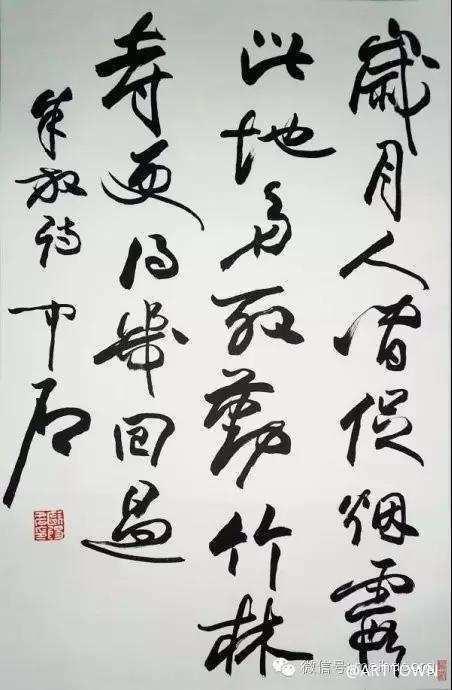 歲月人間促烟霞
此地多殷勤竹林
寺更得幾回過
朱放詩 中石
微信号:
@ARTTOWN